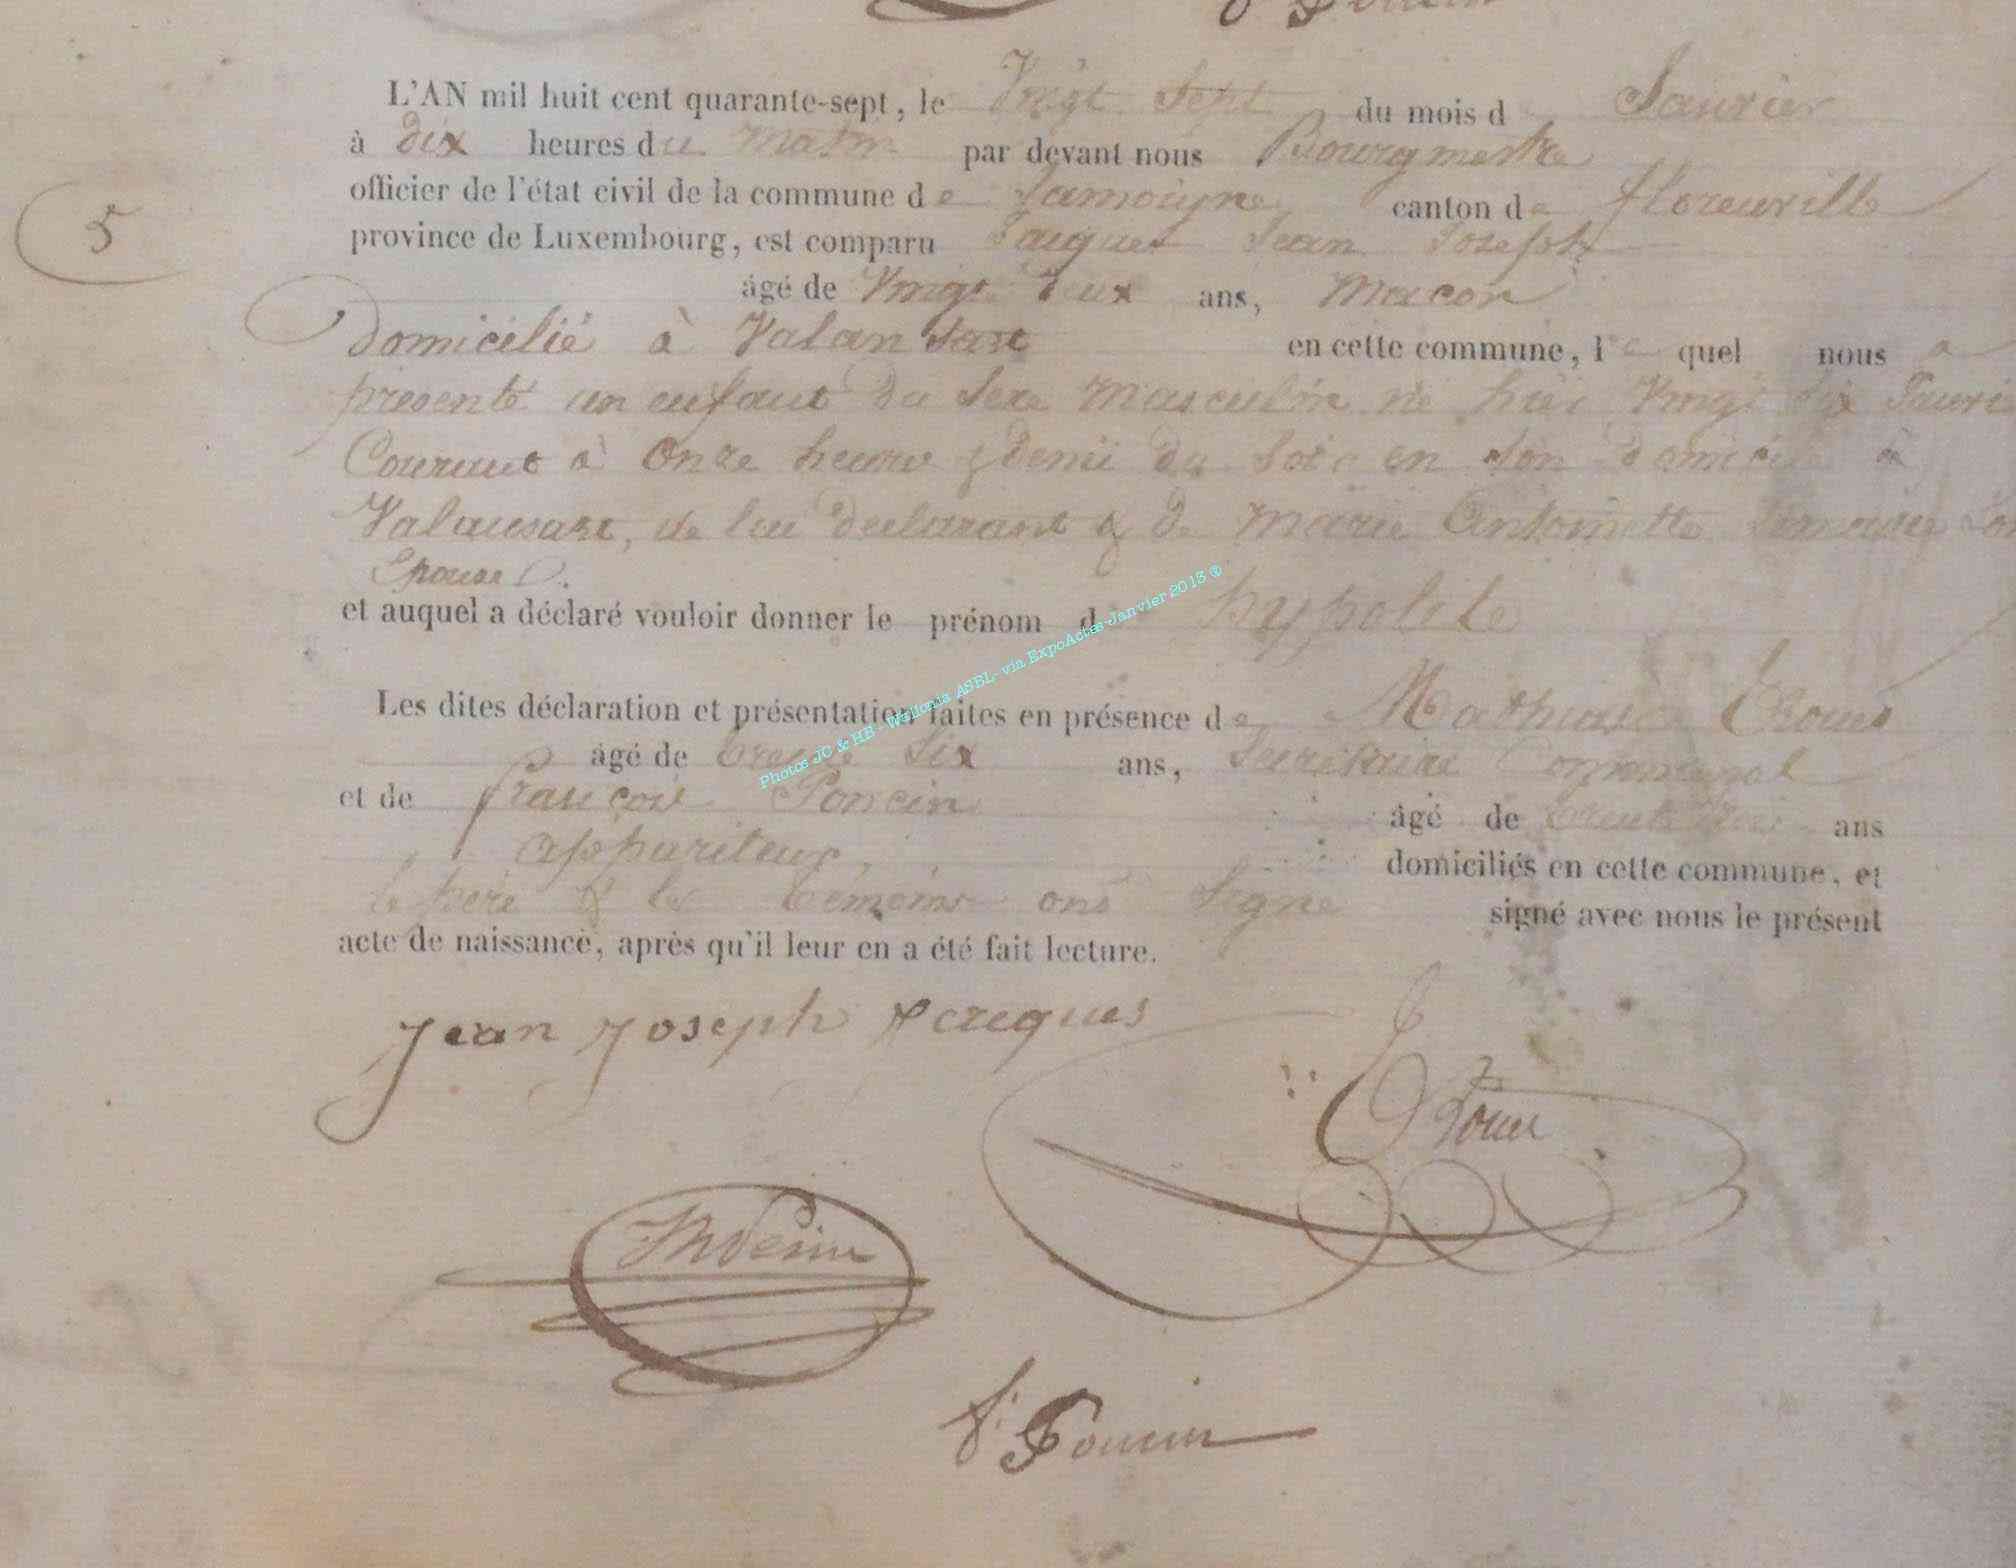 5
L'AN mil huit cent quarante-sept, le Vingt Sept du mois d Janvier
à dix heures du matin par devant nous Bourgmestre
officier de l'état civil de la commune de Jamoigne canton de floreuville
province de Luxembourg, est comparu Jacques Jean Joseph
âgé de Vingt deux ans, Macon
domicilié à Valan Sart en cette commune, le quel nous a
presenté un enfant du Sexe Masculin né hier Vingt Six Janvie
Courant à Onze heures & demie du Soir en son domicile à
Valansart, de lui declarant & de Marie Antoinette
Epouse
et auquel a déclaré vouloir donner le prénom d hypolite
Les dites déclaration et présentation faites en présence de Mathias
âgé de trente Six ans, Secretaire Communal
et de françois Poncin âgé de trente ans
appariteur, domiciliés en cette commune, et
le père & les témoins ont Signé signé avec nous le présent
acte de naissance, après qu'il leur en a été fait lecture.
Jean Joseph Jacques
f. Poncin
Photos JC & HB - Wallonia ASBL - via ExpoActes Janvier 2013 ®